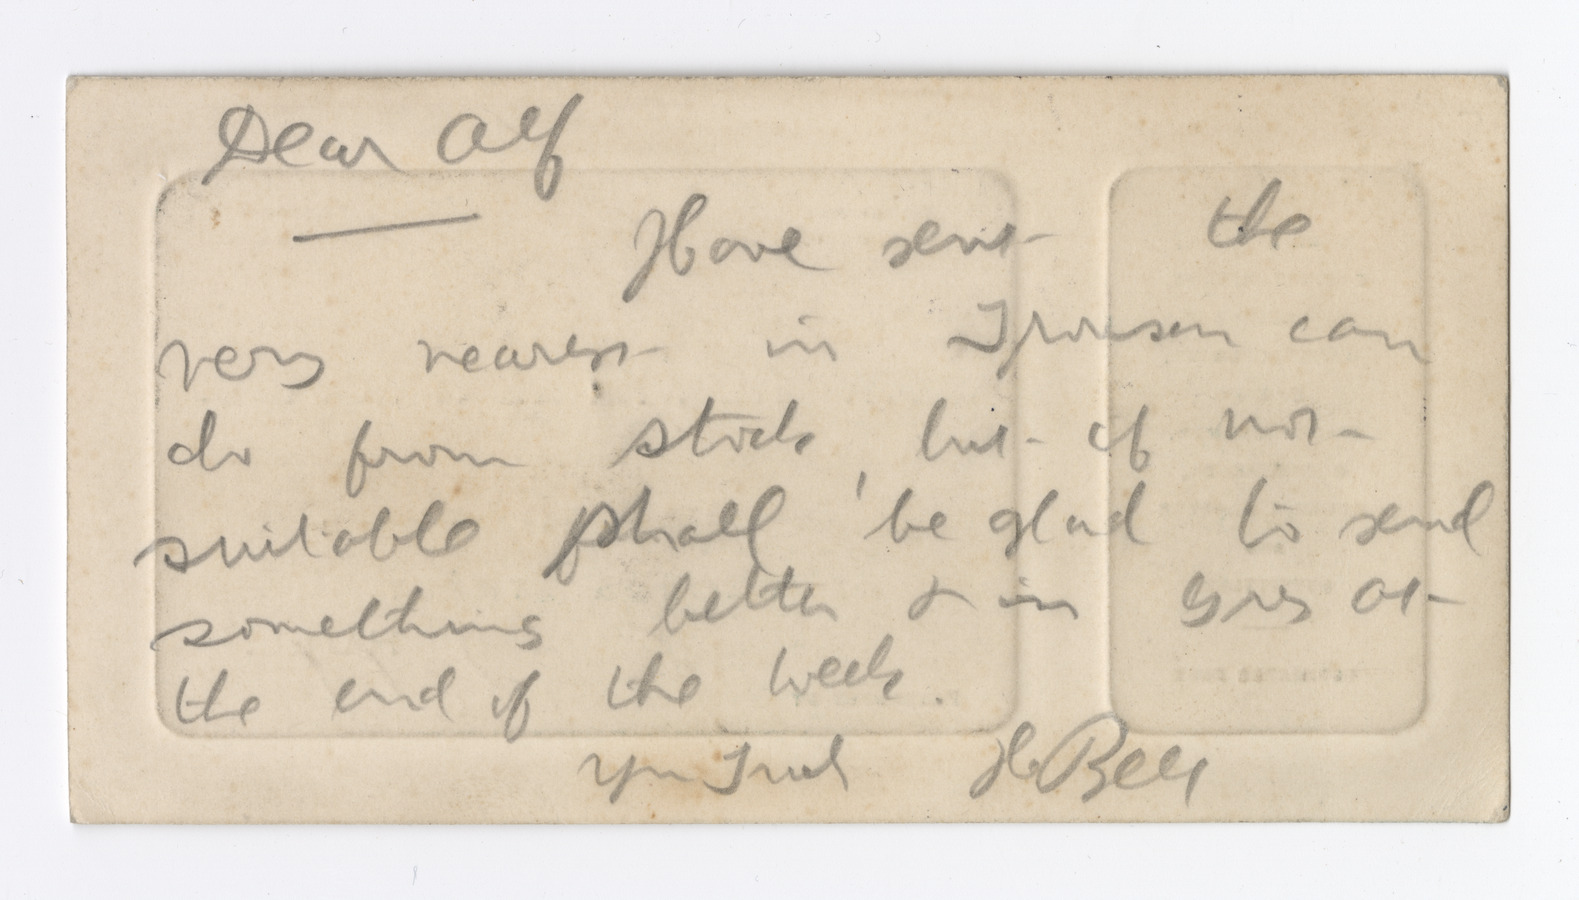 Dear Alf
Have sent the
very nearest in Trouser can
do from stock but if not
suitable shall be glad to send
something better & in grey at
the end of the week.
Yrs Truly H Bell